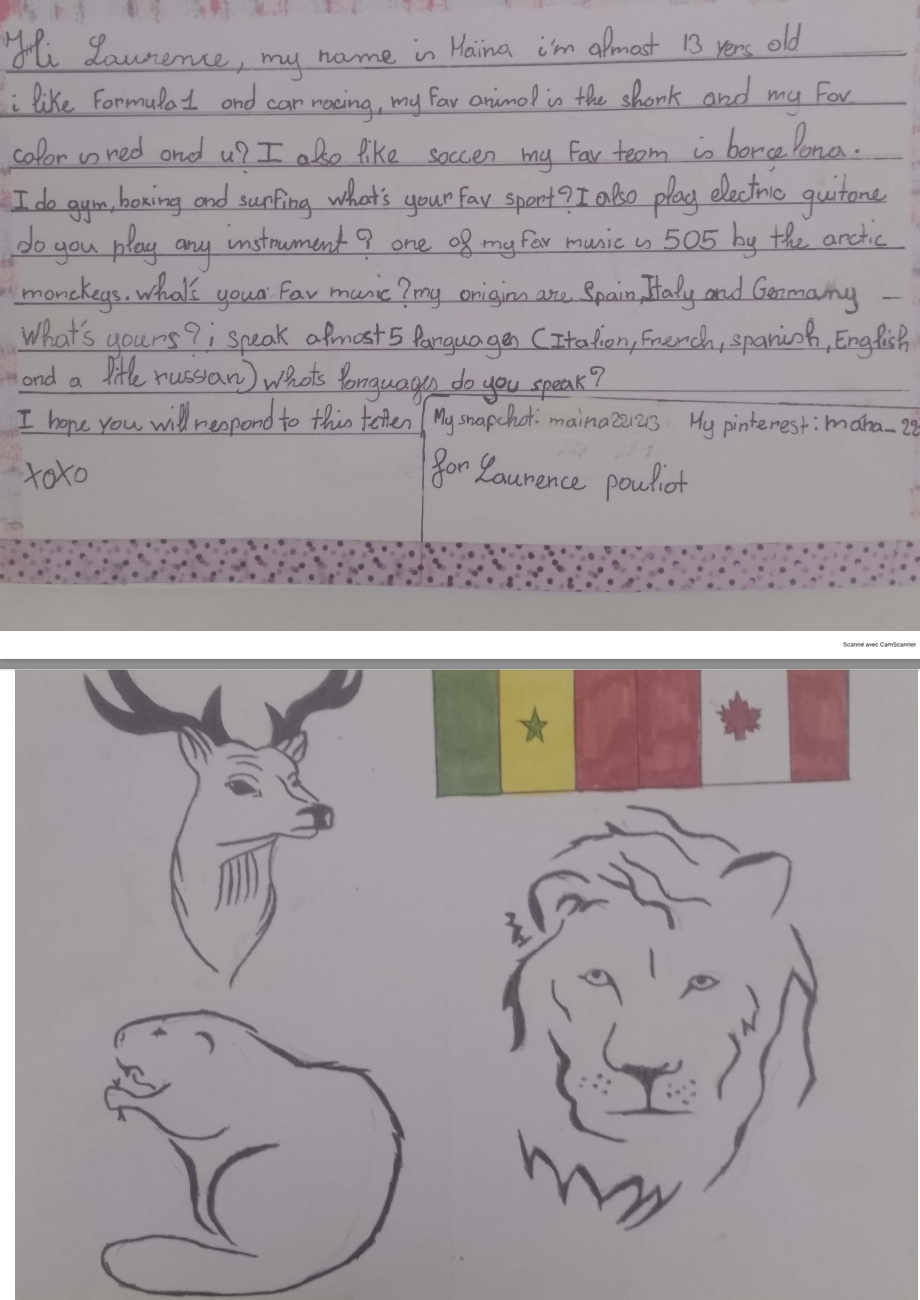 Hi Laurence, my name is Maïna i'm almost 13 yers old
i like Formula1 and car racing, my fav animal is the shark and my fav
color is red and u? I also like soccer my fav team is barcelona.
I do gym, boxing and surfing what's your fav sport? I also play electric guitare
do you play any instrument? one of my fav music is 505 by the arctic
monckeys. what's your fav music? my origins are Spain, Italy and Germany –
What's yours? i speak almost 5 languages (Italian, French, spanish, English
and a litle russian) whats languages do you speak?
I hope you will respond to this letter
My snapchat: maina221213 My pinterest:
xoxo
for Laurence pouliot
Scanné avec CamScanner